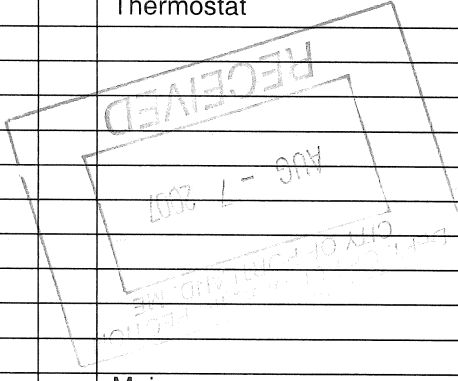 Thermostat
RECEIVED
AUG - 7 2007
CITY OF PORTLAND, ME